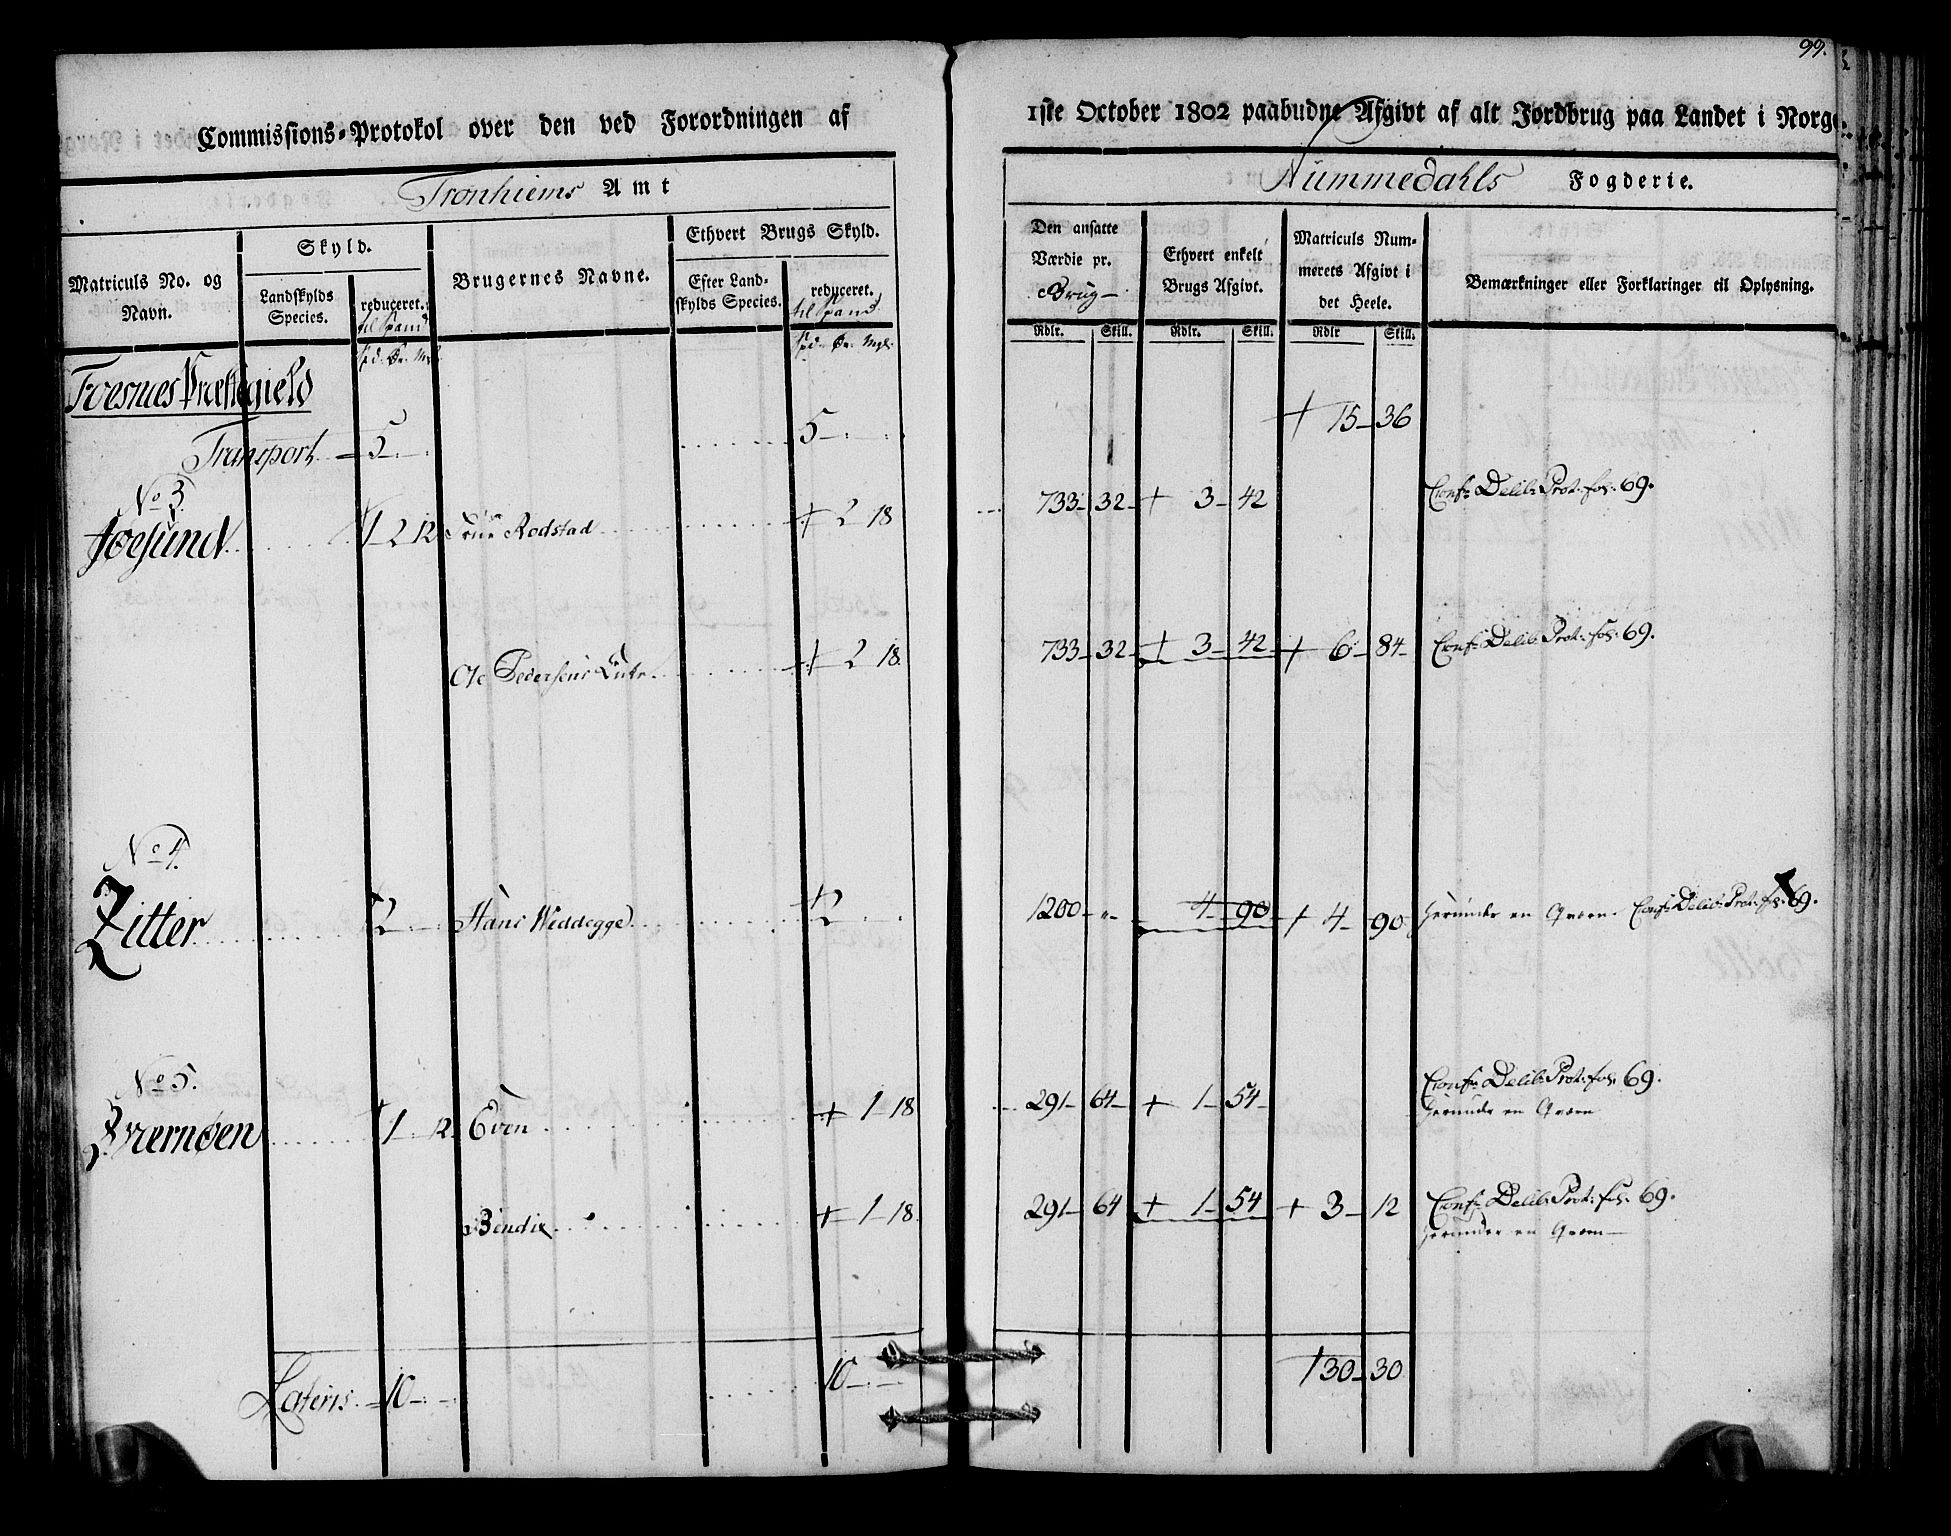 99.
Commissions-Protokol over den ved Forordningen af 1ste October 1802 paabudne Afgivt af alt Jordbrug paa Landet i Norge.
Tronhiems Amt
Nummedahls Fogderie.
Matriculs No. og Navn.
Skyld.
Landskylds Species.
reduceret. til Spand
Brugernes Navne.
Ethvert Brugs Skyld.
Efter Landskylds Species.
reduceret. til Spand
Den ansatte Værdie pr. Brug
Ethvert enkelt Brugs Afgivt.
Matriculs Nummerets Afgivt i det Heele.
Bemærkninger eller Forklaringer til Oplysning.
Rdlr. Skill. Rdlr. Skill. Rdlr Skill.
Foesnes Præstegield
Transport 5 5 15 36
No 3.
Joesund 1 2 12 Rodstad 2 18 733 32 3 42 Conf: Delib: Prot: fol: 69.
Ole Pedersens 2 18 733 32 3 42 6 84 Conf: Delib: Prot: fol: 69.
No 4.
Zitter 2 Hans Weddegge 2 1200 " 4 90 4 90 herunder en Qværn. Conf: Delib: Prot: fol: 69.
No 5.
1 12 Even 1 18 291 64 1 54 Conf: Delib: Prot: fol: 69.
herunder en Qværn
Bendix 1 18 291 64 1 54 3 12 Conf: Delib: Prot: fol: 69.
herunder en Qværn
Lateris 10 10 30 30